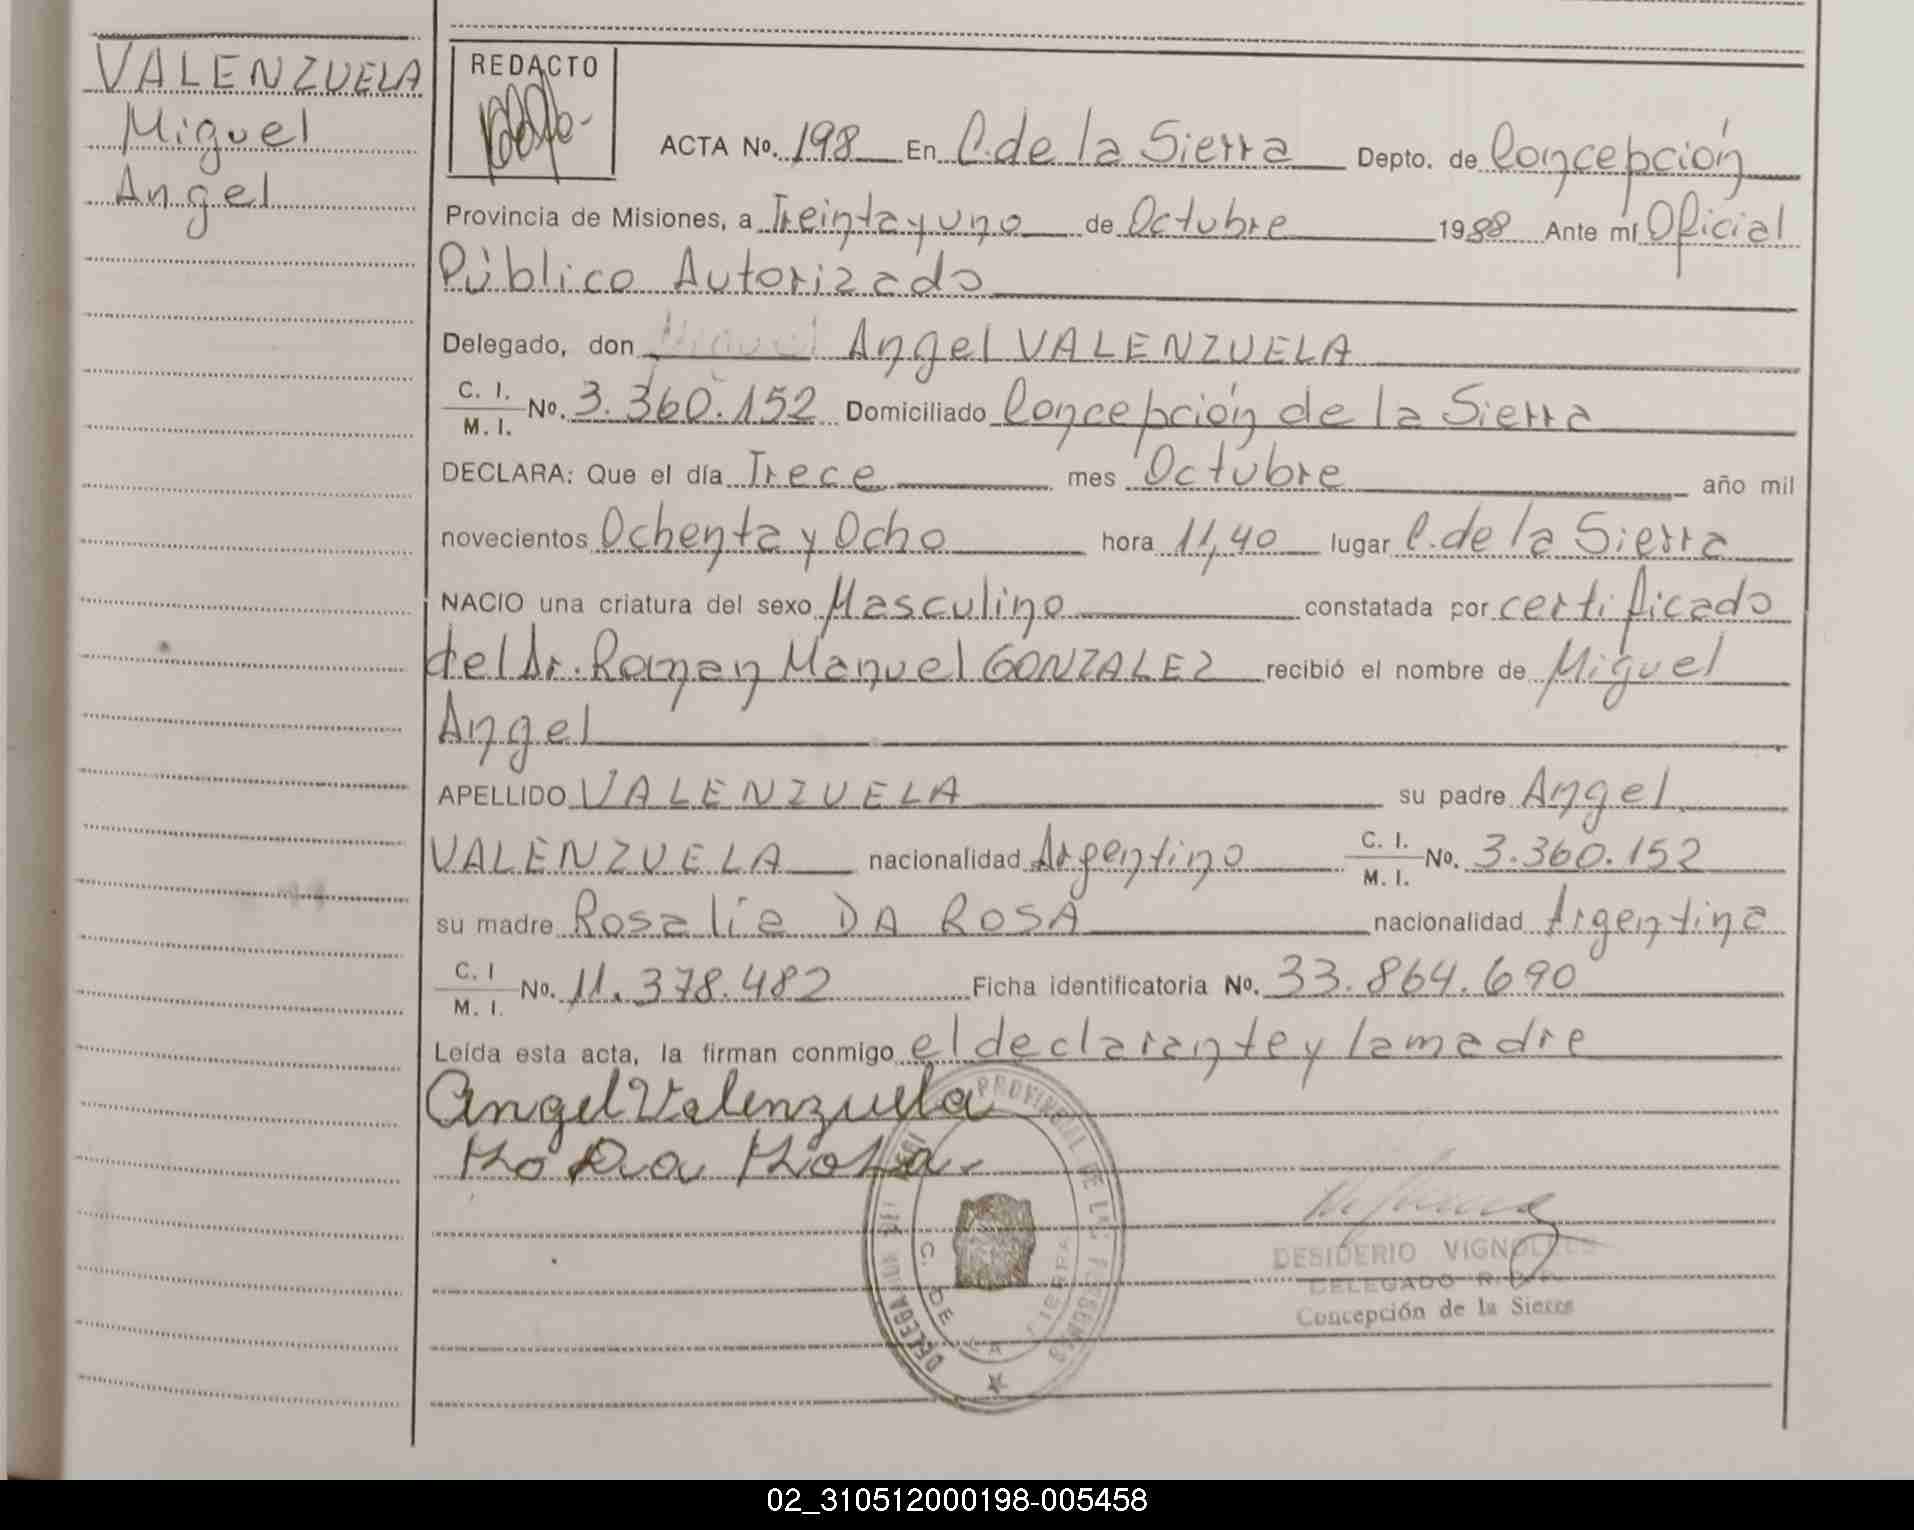 VALENZUELA
Miguel
Angel
REDACTO
ACTA No. 198 En C. de la Sierra Depto. de Concepción
Provincia de Misiones, a Treinta y uno de Octubre 1988 Ante mí Oficial
Público Autorizado
Delegado, don Miguel Angel VALENZUELA
C. I.
M. I. No. 3.360.152 Domiciliado Concepción de la Sierra
DECLARA: Que el día Trece mes Octubre año mil
novecientos Ochenta y Ocho hora 11,40 lugar C. de la Sierra
NACIO una criatura del sexo Masculino constatada por certificado
del Dr. Roman Manuel GONZALEZ recibió el nombre de Miguel
Angel
APELLIDO VALENZUELA su padre Angel
VALENZUELA nacionalidad Argentino C. I. M. I. No. 3.360.152
su madre Rosalia DA ROSA nacionalidad Argentina
C. I
M. I. No. 11.378.482 Ficha identificatoria No. 33.864.690
Leída esta acta, la firman conmigo el declarante y la madre
Angel Valenzuela
Ro Da Rosa.
PROVINCIAL DE LAS PERSONAS
DELEGA
C. DE LA SIERRA
DESIDERIO VIGNOLLES
DELEGADO R.P.P.
Concepción de la Sierra
02_310512000198-005458